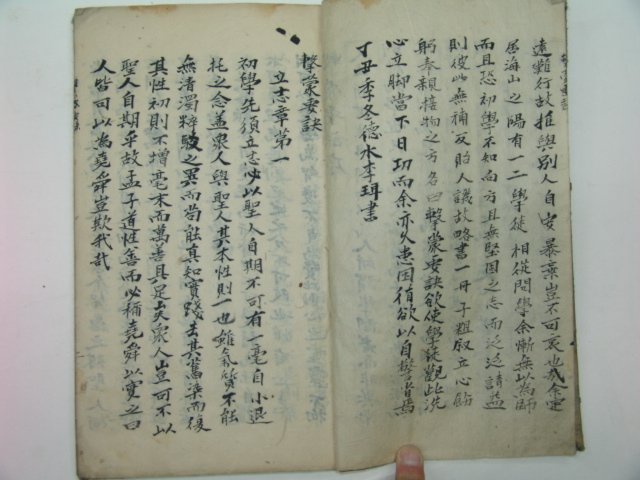 遠難行故推與別人自安暴棄豈不可哀也哉余定
居海山之陽有一二學徒相從問學余慚無以爲師
而且恐初學不知向方且無堅固之志而泛泛請益
則彼此無補反貽人譏故略書一冊子粗敍立心飭
躬奉親接物之方名曰擊蒙要訣欲使學徒觀此洗
心立脚當下日功而余亦久患因循欲以自警省焉
丁丑季冬德水李珥書
擊蒙要訣
立志章第一
初學先須立志必以聖人自期不可有一毫自小退
托之念盖衆人與聖人其本性則一也雖氣質不能
無清濁粹駁之異而苟能真知實踐去其舊染而復
其性初則不增毫末而萬善具足矣衆人豈可不以
聖人自期乎故孟子道性善而必稱堯舜以實之曰
人皆可以為堯舜豈欺我哉